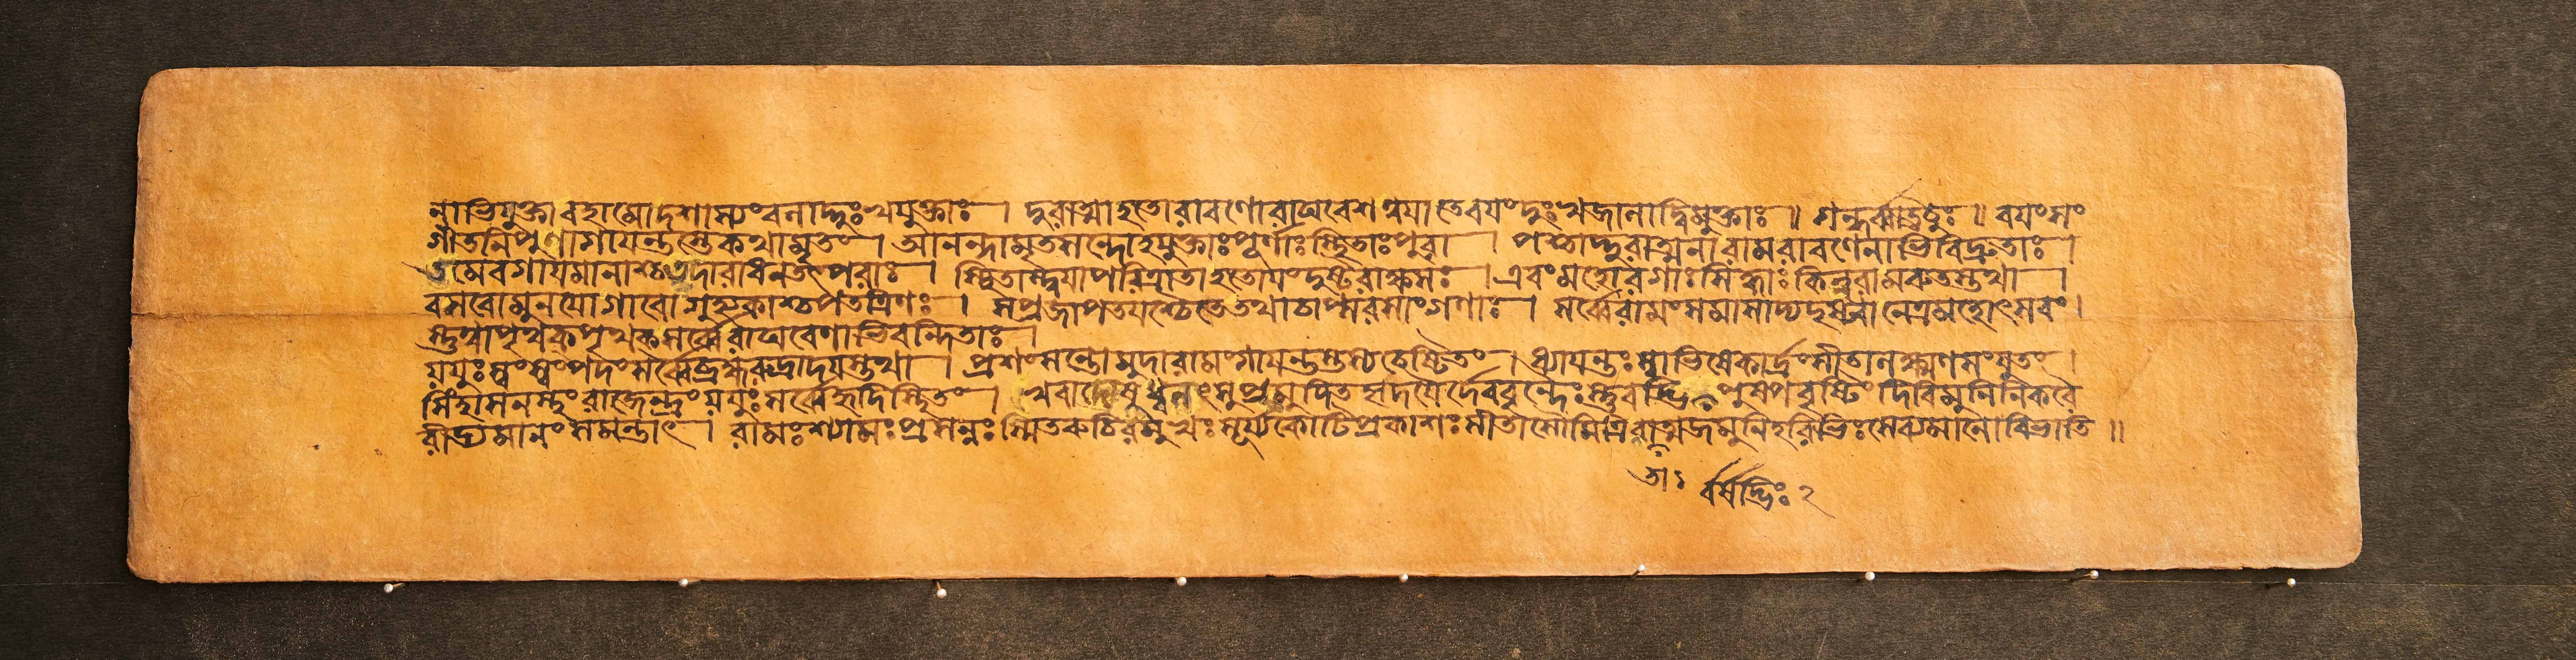 ন্নাভিযুক্তা বহামোদশাস্যং বনাদ্দুঃখমুক্তাঃ । দুরাত্মা হতো রাবণো রাঘবেশ ত্বয়া তে বয়ং দুঃখজাতাদ্বিমুক্তাঃ ॥ গন্ধর্ব্বা ঊচুঃ ॥ বয়ং সং
গীতনিপুণা গায়ন্তস্তে কথামৃতং । আনন্দামৃতসন্দোহযুক্তাঃ পূর্ণাঃ স্থিতাঃ পুরা । পশ্চাদ্দুরাত্মনা রাম রাবণেনাভিবিদ্রুতাঃ ।
তমেব গায়মানাশ্চ তদারাধনতৎপরাঃ । স্থিতাস্ত্বয়া পরিত্রাতা হতোয়ং দুষ্টরাক্ষসঃ । এবং মহোরগাঃ সিদ্ধাঃ কিন্নরা মরুতস্তথা ।
বসবো মুনয়ো গাবো গুহ্যকাশ্চ পতত্রিণঃ । সপ্রজাপতয়শ্চৈতে তথা চাপ্সরসাং গণাঃ । সর্ব্বে রামং সমাসাদ্য দৃষ্ট্বা নেত্রমহোৎসবং ।
স্তুত্বা পৃথক্ পৃথক্ সর্ব্বে রাঘবেণাভিবন্দিতাঃ ।
যযুঃ স্বং স্বং পদং সর্ব্বে ব্রহ্মরুদ্রাদয়স্তথা । প্রশংসন্তো মুদা রামং গায়ন্তস্তস্য চেষ্টিতং । ধ্যায়ন্তঃ স্বাভিষেকার্দ্রং সীতালক্ষ্মণসংযুতং ।
সিংহাসনস্থং রাজেন্দ্রং যযুঃ সর্ব্বে হৃদি স্থিতং । খে বাদ্যেষু ধ্বনৎসু প্রমুদিতহৃদয়ৈর্দেববৃন্দৈঃ স্তুবদ্ভিঃ পুষ্পবৃষ্টিং দিবি মুনিনিকরৈ
রীড্যমানঃ সমন্তাৎ । রামঃ শ্যামঃ প্রসন্নঃ স্মিতরুচিরমুখঃ সূর্য্যকোটিপ্রকাশঃ সীতাসৌমিত্রিবাত্মজমুনিহরিভিঃ সেব্যমানো বিভাতি ॥
তা
র্বর্ষদ্ভিঃ ২